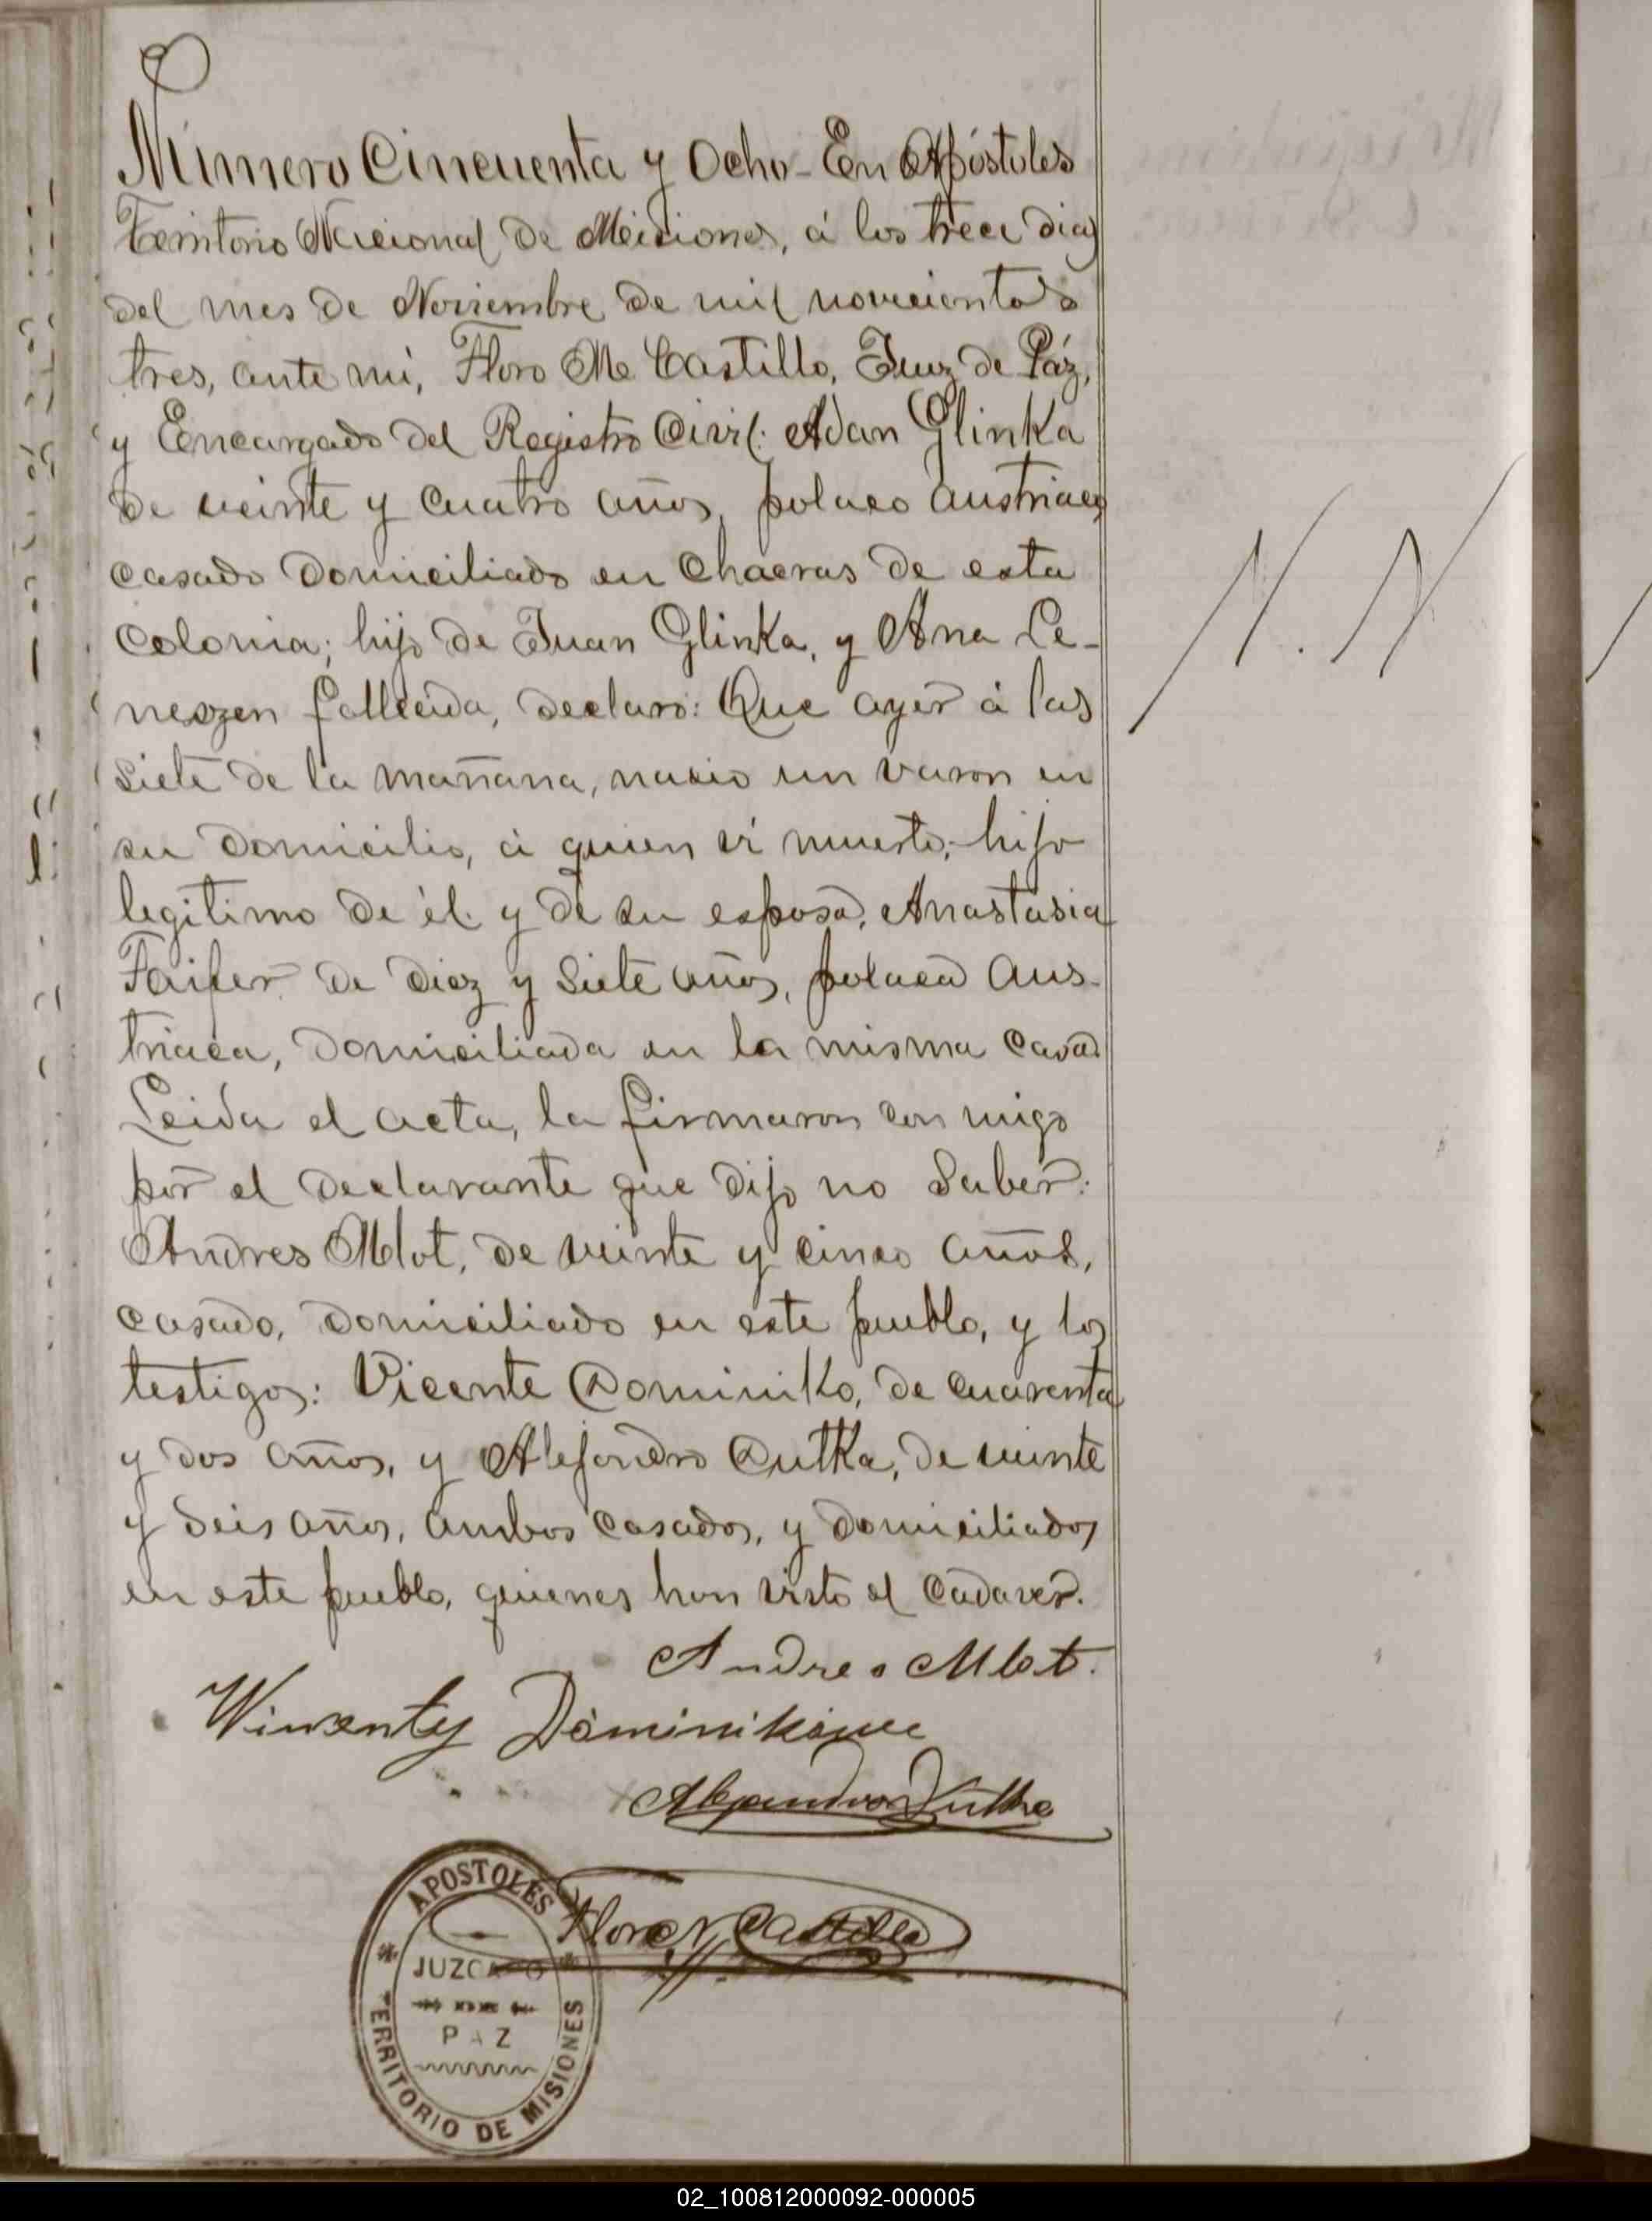 Número Cincuenta y Ocho - En Apóstoles
Territorio Nacional de Misiones, á los trece dias
del mes de Noviembre de mil novecientos
tres, ante mí, Floro M. Castillo, Juez de Páz,
y Encargado del Registro Civil: Adan Glinka
de veinte y cuatro años, polaco austriaco
casado domiciliado en chacras de esta
Colonia; hijo de Juan Glinka, y Ana Le-
neszen fallecida, declaró: Que ayer á las
siete de la mañana, nacio un varon en
su domicilio, á quien ví muerto; hijo
legitimo de él y de su esposa, Anastasia
Faifer de diez y siete años, polaca aus-
triaca, domiciliada en la misma casa.
Leida el acta, la firmaron con migo
por el declarante que dijo no saber:
Andres Mlot, de veinte y cinco años,
casado, domiciliado en este pueblo, y los
testigos: Vicente Dominiko, de cuarenta
y dos años, y Alejandro Dutka, de veinte
y seis años, ambos casados, y domiciliados
en este pueblo, quienes han visto el cadaver.
N. N
Andres Mlot.
Wincenty
Alejandro Dutka
Floro M Castillo
APOSTOLES
JUZGADO
PAZ
TERRITORIO DE MISIONES
02_100812000092-000005